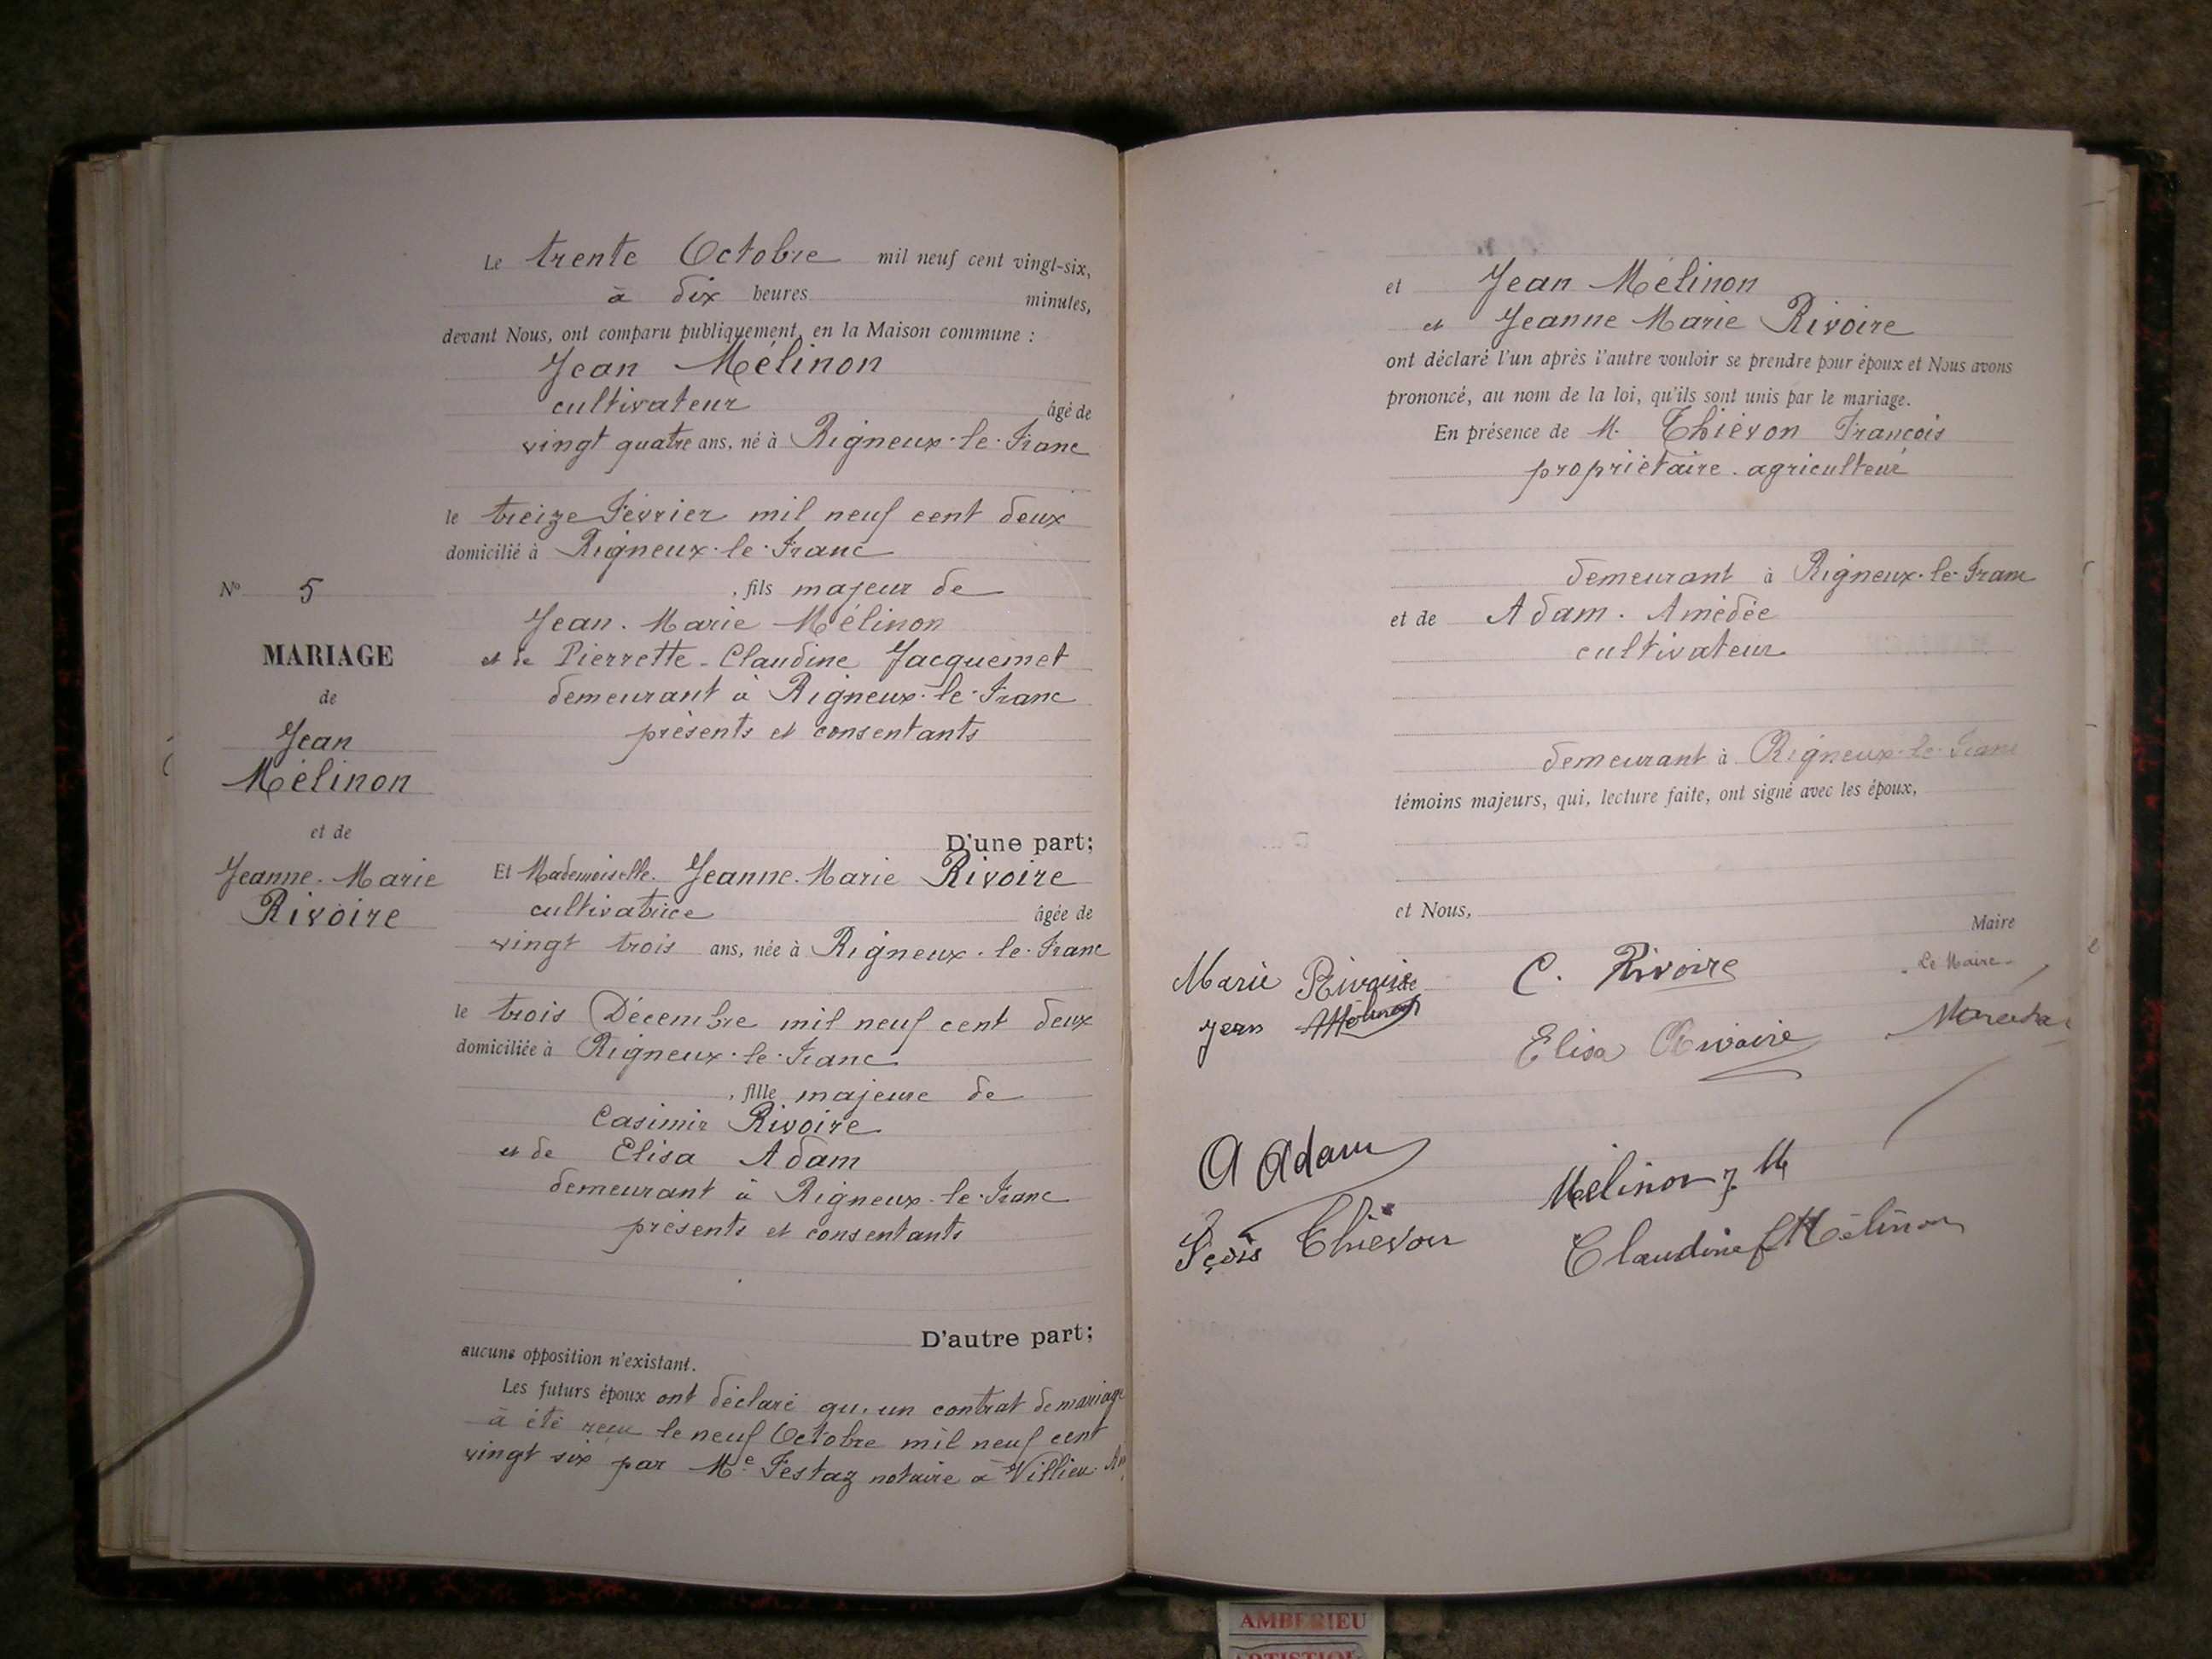 Le trente Octobre mil neuf cent vingt-six,
à dix heures minutes,
devant Nous, ont comparu publiquement, en la Maison commune :
Jean Mélinon
cultivateur âgé de
vingt quatre ans, né à Rigneux-le-Franc
le treize Février mil neuf cent deux
domicilié à Rigneux-le-Franc
, fils majeur de
Jean-Marie Mélinon
et de Pierrette-Claudine Jacquemet
demeurant à Rigneux-le-Franc
présents et consentants
D'une part;
Et Mademoiselle Jeanne-Marie Rivoire
cultivatrice âgée de
vingt trois ans, née à Rigneux-le-Franc
le trois Décembre mil neuf cent deux
domiciliée à Rigneux-le-Franc
, fille majeure de
Casimir Rivoire
et de Elisa Adam
demeurant à Rigneux-le-Franc
présents et consentants
D'autre part;
aucune opposition n'existant.
Les futurs époux ont déclaré qu'un contrat de mariage
à été reçu le neuf Octobre mil neuf cent
vingt six par Me Festaz notaire à Villieu
No 5
MARIAGE
de
Jean
Mélinon
et de
Jeanne-Marie
Rivoire
et Jean Mélinon
et Jeanne Marie Rivoire
ont déclaré l'un après l'autre vouloir se prendre pour époux et Nous avons
prononcé, au nom de la loi, qu'ils sont unis par le mariage.
En présence de M. Thiévon François
propriétaire-agriculteur
demeurant à Rigneux-le-Franc
et de Adam Amédée
cultivateur
demeurant à Rigneux-le-Franc
témoins majeurs, qui, lecture faite, ont signé avec les époux,
et Nous, Maire
Le Maire
Marie Rivoire C. Rivoire
Jean Mélinon Elisa Rivoire
A Adam Mélinon J. M
Fçois Thiévon Claudine f Mélinon
AMBERIEU